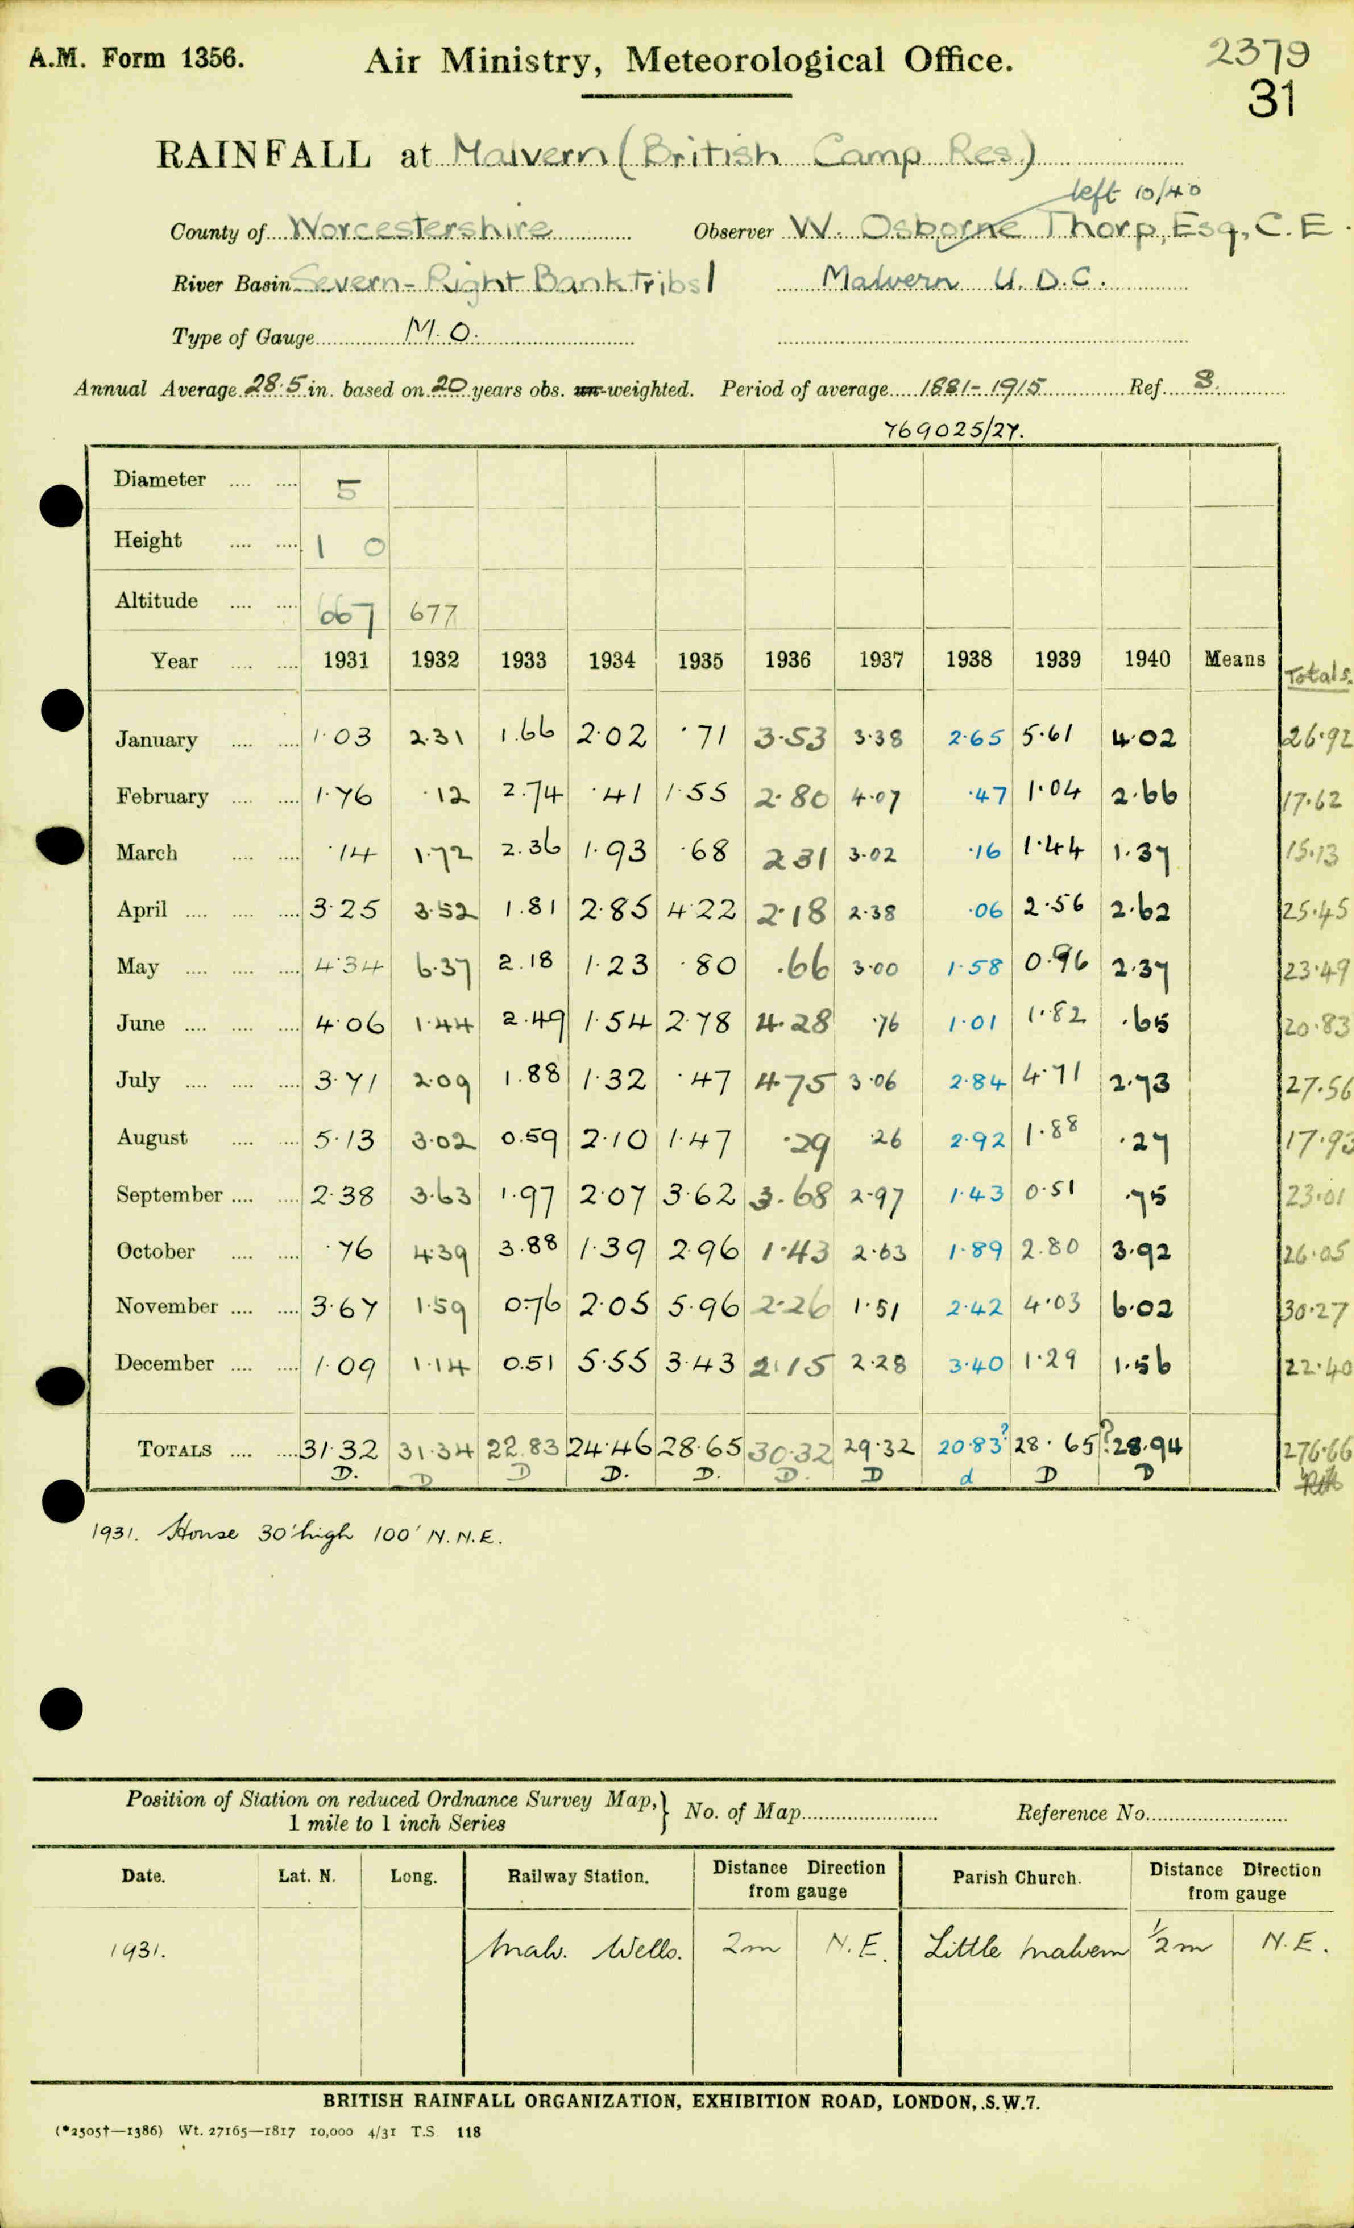 A.M. Form 1356.
Air Ministry, Meteorological Office.
2379
31
RAINFALL at Malvern (British Camp Res.)
left 10/40
County of Worcestershire Observer W. Osborne Thorp, Esq, C.E.
River Basin Severn - Right Bank Tribs 1 Malvern U.D.C.
Type of Gauge M.O.
Annual Average 28.5 in. based on 20 years obs. un-weighted. Period of average 1881-1915 Ref. S.
769025/27.
Diameter .... .... 5
Height .... .... 1 0
Altitude .... .... 667 677
Year .... .... 1931 1932 1933 1934 1935 1936 1937 1938 1939 1940 Means Totals.
January .... .... 1.03 2.31 1.66 2.02 .71 3.53 3.38 2.65 5.61 4.02 26.92
February .... .... 1.76 .12 2.74 .41 1.55 2.80 4.07 .47 1.04 2.66 17.62
March .... .... .14 1.72 2.36 1.93 .68 2 31 3.02 .16 1.44 1.37 15.13
April .... .... .... 3.25 3.52 1.81 2.85 4.22 2.18 2.38 .06 2.56 2.62 25.45
May .... .... .... 4.34 6.37 2.18 1.23 .80 .66 3.00 1.58 0.96 2.37 23.49
June .... .... .... 4.06 1.44 2.49 1.54 2.78 4.28 .76 1.01 1.82 .65 20.83
July .... .... .... 3.71 2.09 1.88 1.32 .47 4.75 3.06 2.84 4.71 2.73 27.56
August .... .... 5.13 3.02 0.59 2.10 1.47 .29 .26 2.92 1.88 .27 17.93
September .... .... 2.38 3.63 1.97 2.07 3.62 3.68 2.97 1.43 0.51 .75 23.01
October .... .... .76 4.39 3.88 1.39 2.96 1.43 2.63 1.89 2.80 3.92 26.05
November .... .... 3.67 1.59 0.76 2.05 5.96 2.26 1.51 2.42 4.03 6.02 30.27
December .... .... 1.09 1.14 0.51 5.55 3.43 2.15 2.28 3.40 1.29 1.56 22.40
TOTALS .... .... 31.32 31.34 22.83 24.46 28.65 30.32 29.32 20.83? 28.65? 28.94 276.66
D. D D D. D. D. D d D D
1931. House 30' high 100' N.N.E.
Position of Station on reduced Ordnance Survey Map,
1 mile to 1 inch Series
No. of Map
Reference No.
Date. Lat. N. Long. Railway Station. Distance Direction from gauge Parish Church. Distance Direction from gauge
1931. Malv. Wells. 2m N.E. Little Malvern ½m N.E.
BRITISH RAINFALL ORGANIZATION, EXHIBITION ROAD, LONDON, S.W.7.
(*2505†—1386) Wt. 27165—1817 10,000 4/31 T.S 118